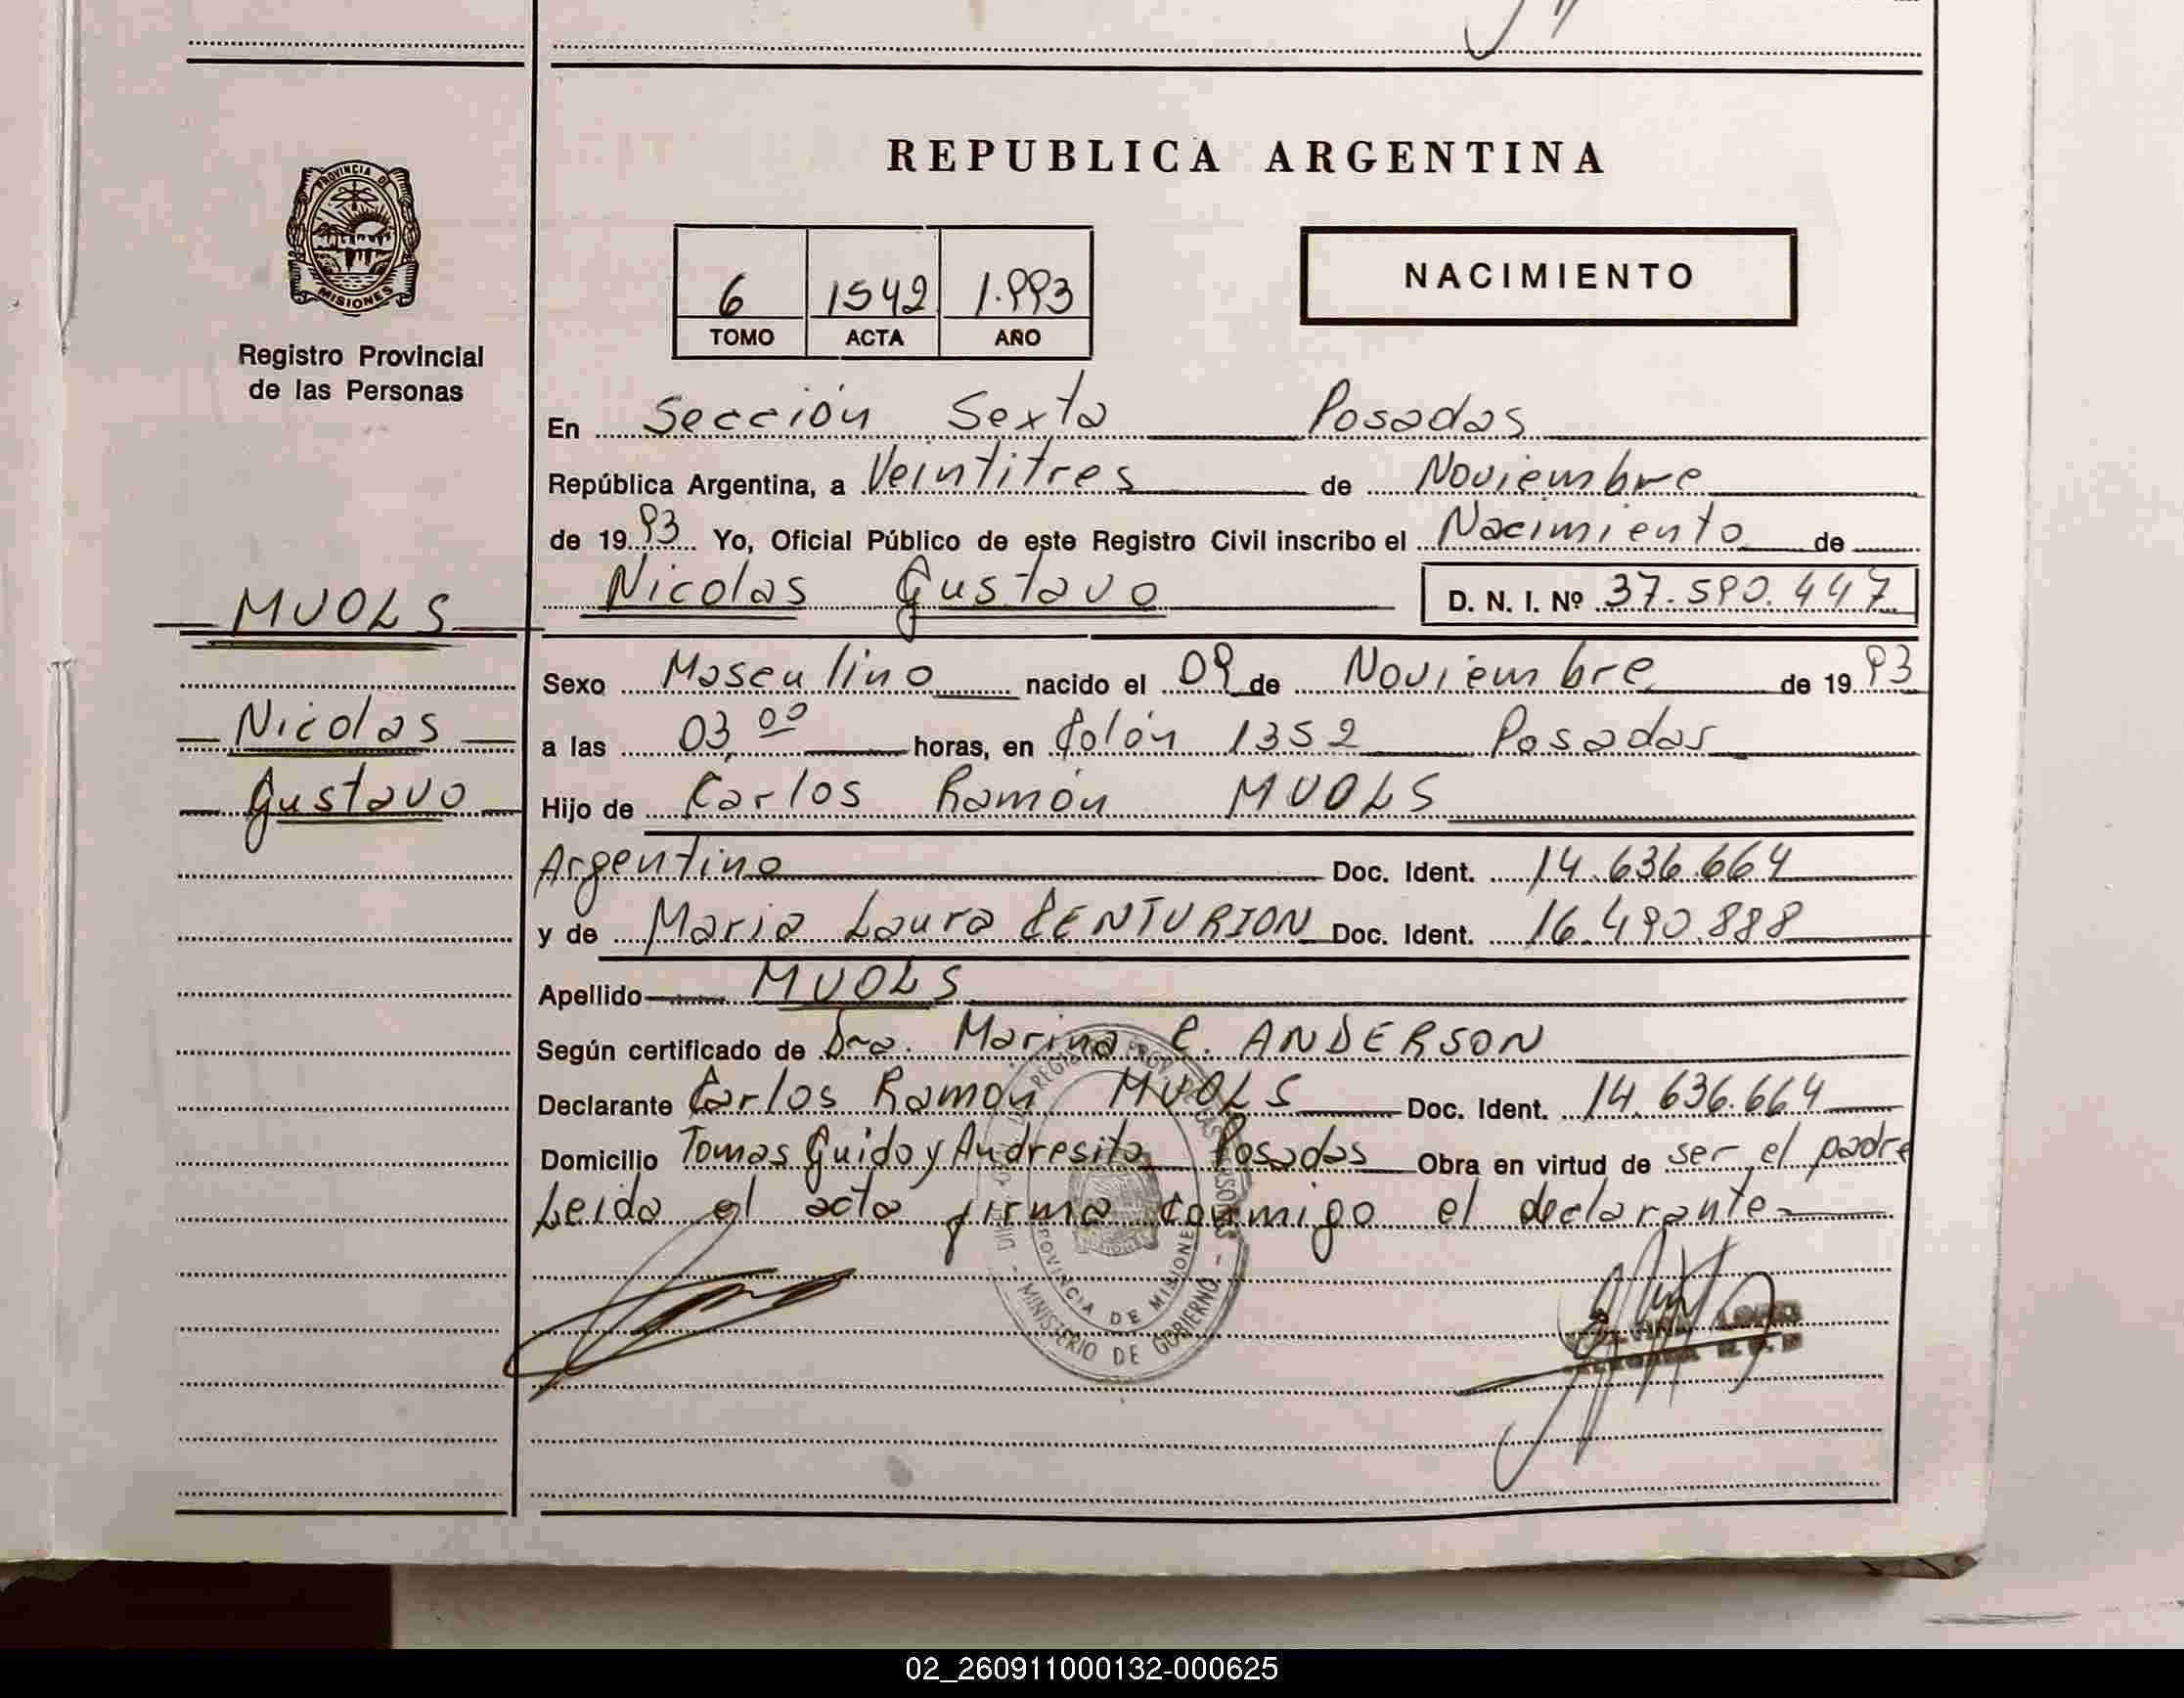 REPUBLICA ARGENTINA
PROVINCIA DE
MISIONES
6 1542 1.993
NACIMIENTO
TOMO ACTA AÑO
Registro Provincial
de las Personas
En Sección Sexta Posadas
República Argentina, a Veintitres de Noviembre
de 1993 Yo, Oficial Público de este Registro Civil inscribo el Nacimiento de
MUOLS
Nicolas Gustavo D. N. I. Nº 37.590.447
Sexo Masculino nacido el 09 de Noviembre de 1993
Nicolas
a las 03,00 horas, en Colón 1352 Posadas
Gustavo
Hijo de Carlos Ramón MUOLS
Argentino Doc. Ident. 14.636.664
y de Maria Laura CENTURION Doc. Ident. 16.490.888
Apellido MUOLS
Según certificado de Dra. Marina C. ANDERSON
Declarante Carlos Ramon MUOLS Doc. Ident. 14.636.664
Domicilio Tomas Guido y Andresito Posadas Obra en virtud de ser el padre
Leida el acta firma conmigo el declarante
PROVINCIA DE MISIONES
MINISTERIO DE GOBIERNO
02_260911000132-000625